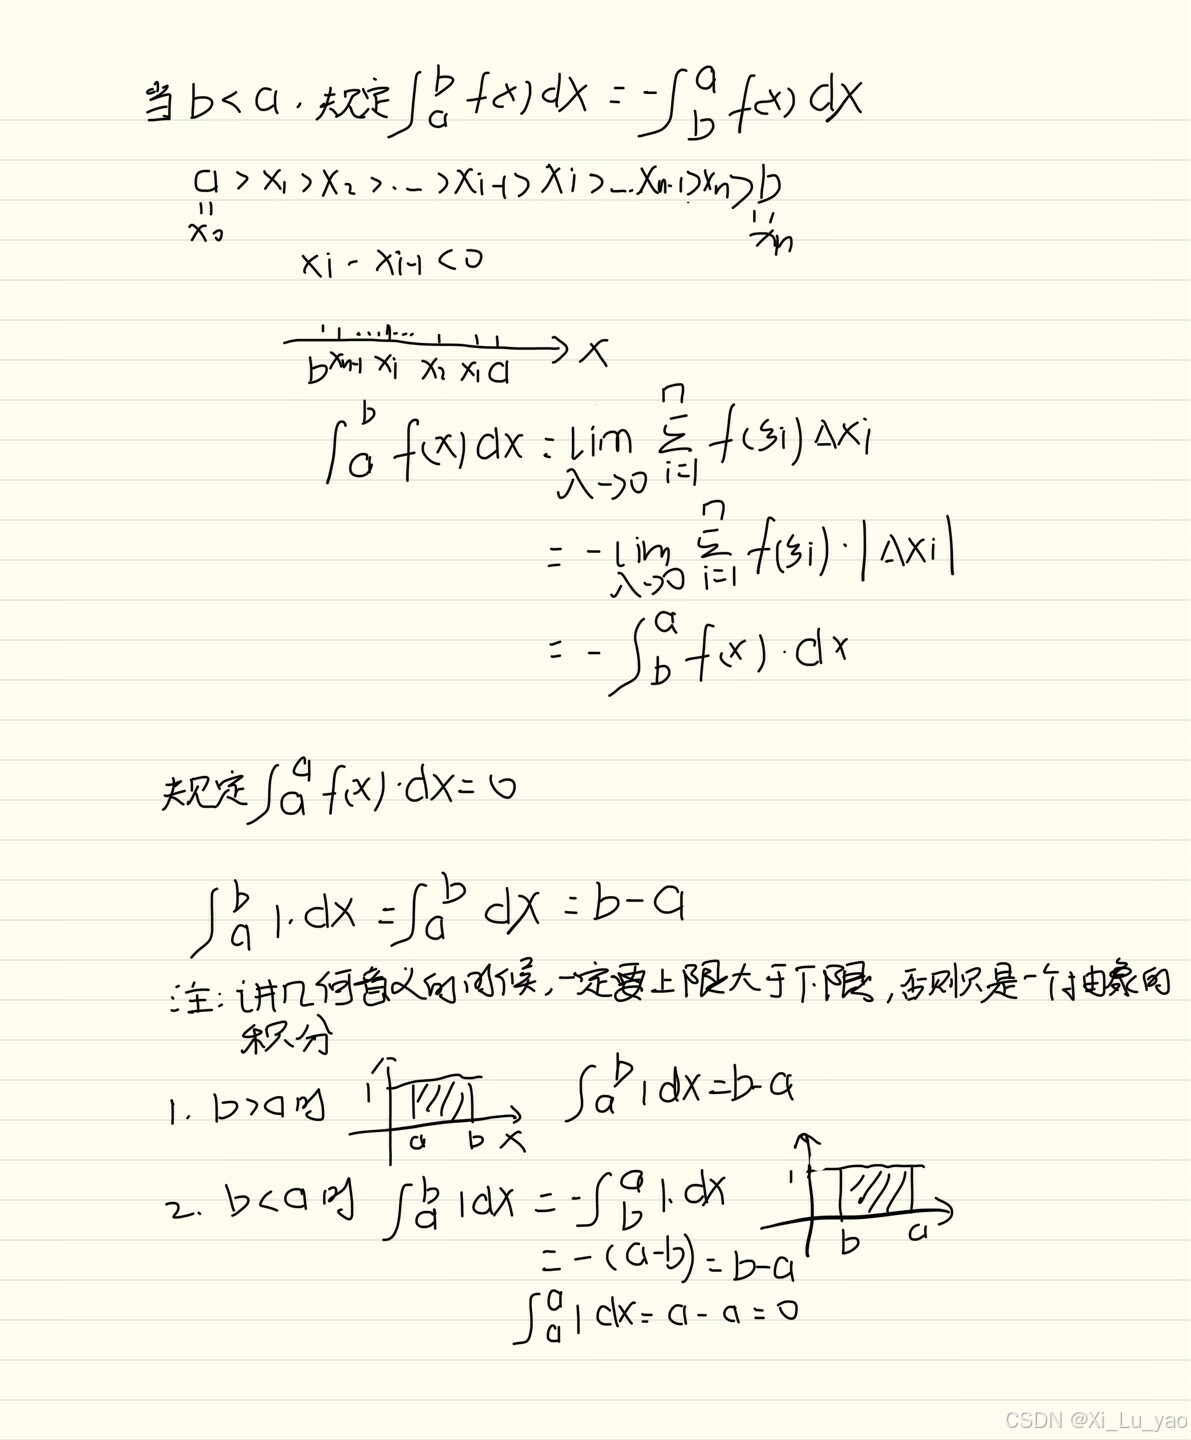 当 b<a. 规定 ∫_a^b f(x) dx = -∫_b^a f(x) dx
a > x₁ > x₂ > ... > xᵢ₋₁ > xᵢ > ... xₙ₋₁ > xₙ > b
= x₀
= xₙ
xᵢ - xᵢ₋₁ < 0
b xₙ₋₁ xᵢ x₂ x₁ a x
∫_a^b f(x) dx = lim_{λ→0} Σ_{i=1}^n f(ξᵢ) Δxᵢ
= - lim_{λ→0} Σ_{i=1}^n f(ξᵢ)·|Δxᵢ|
= - ∫_b^a f(x)·dx
规定 ∫_a^a f(x)·dx = 0
∫_a^b 1·dx = ∫_a^b dx = b-a
注: 讲几何意义的时候,一定要上限大于下限,否则只是一个抽象的
积分
1. b>a时 1 a b x ∫_a^b 1 dx = b-a
2. b<a时 ∫_a^b 1 dx = -∫_b^a 1·dx 1 b a
= -(a-b) = b-a
∫_a^a 1 dx = a - a = 0
CSDN @Xi_Lu_yao